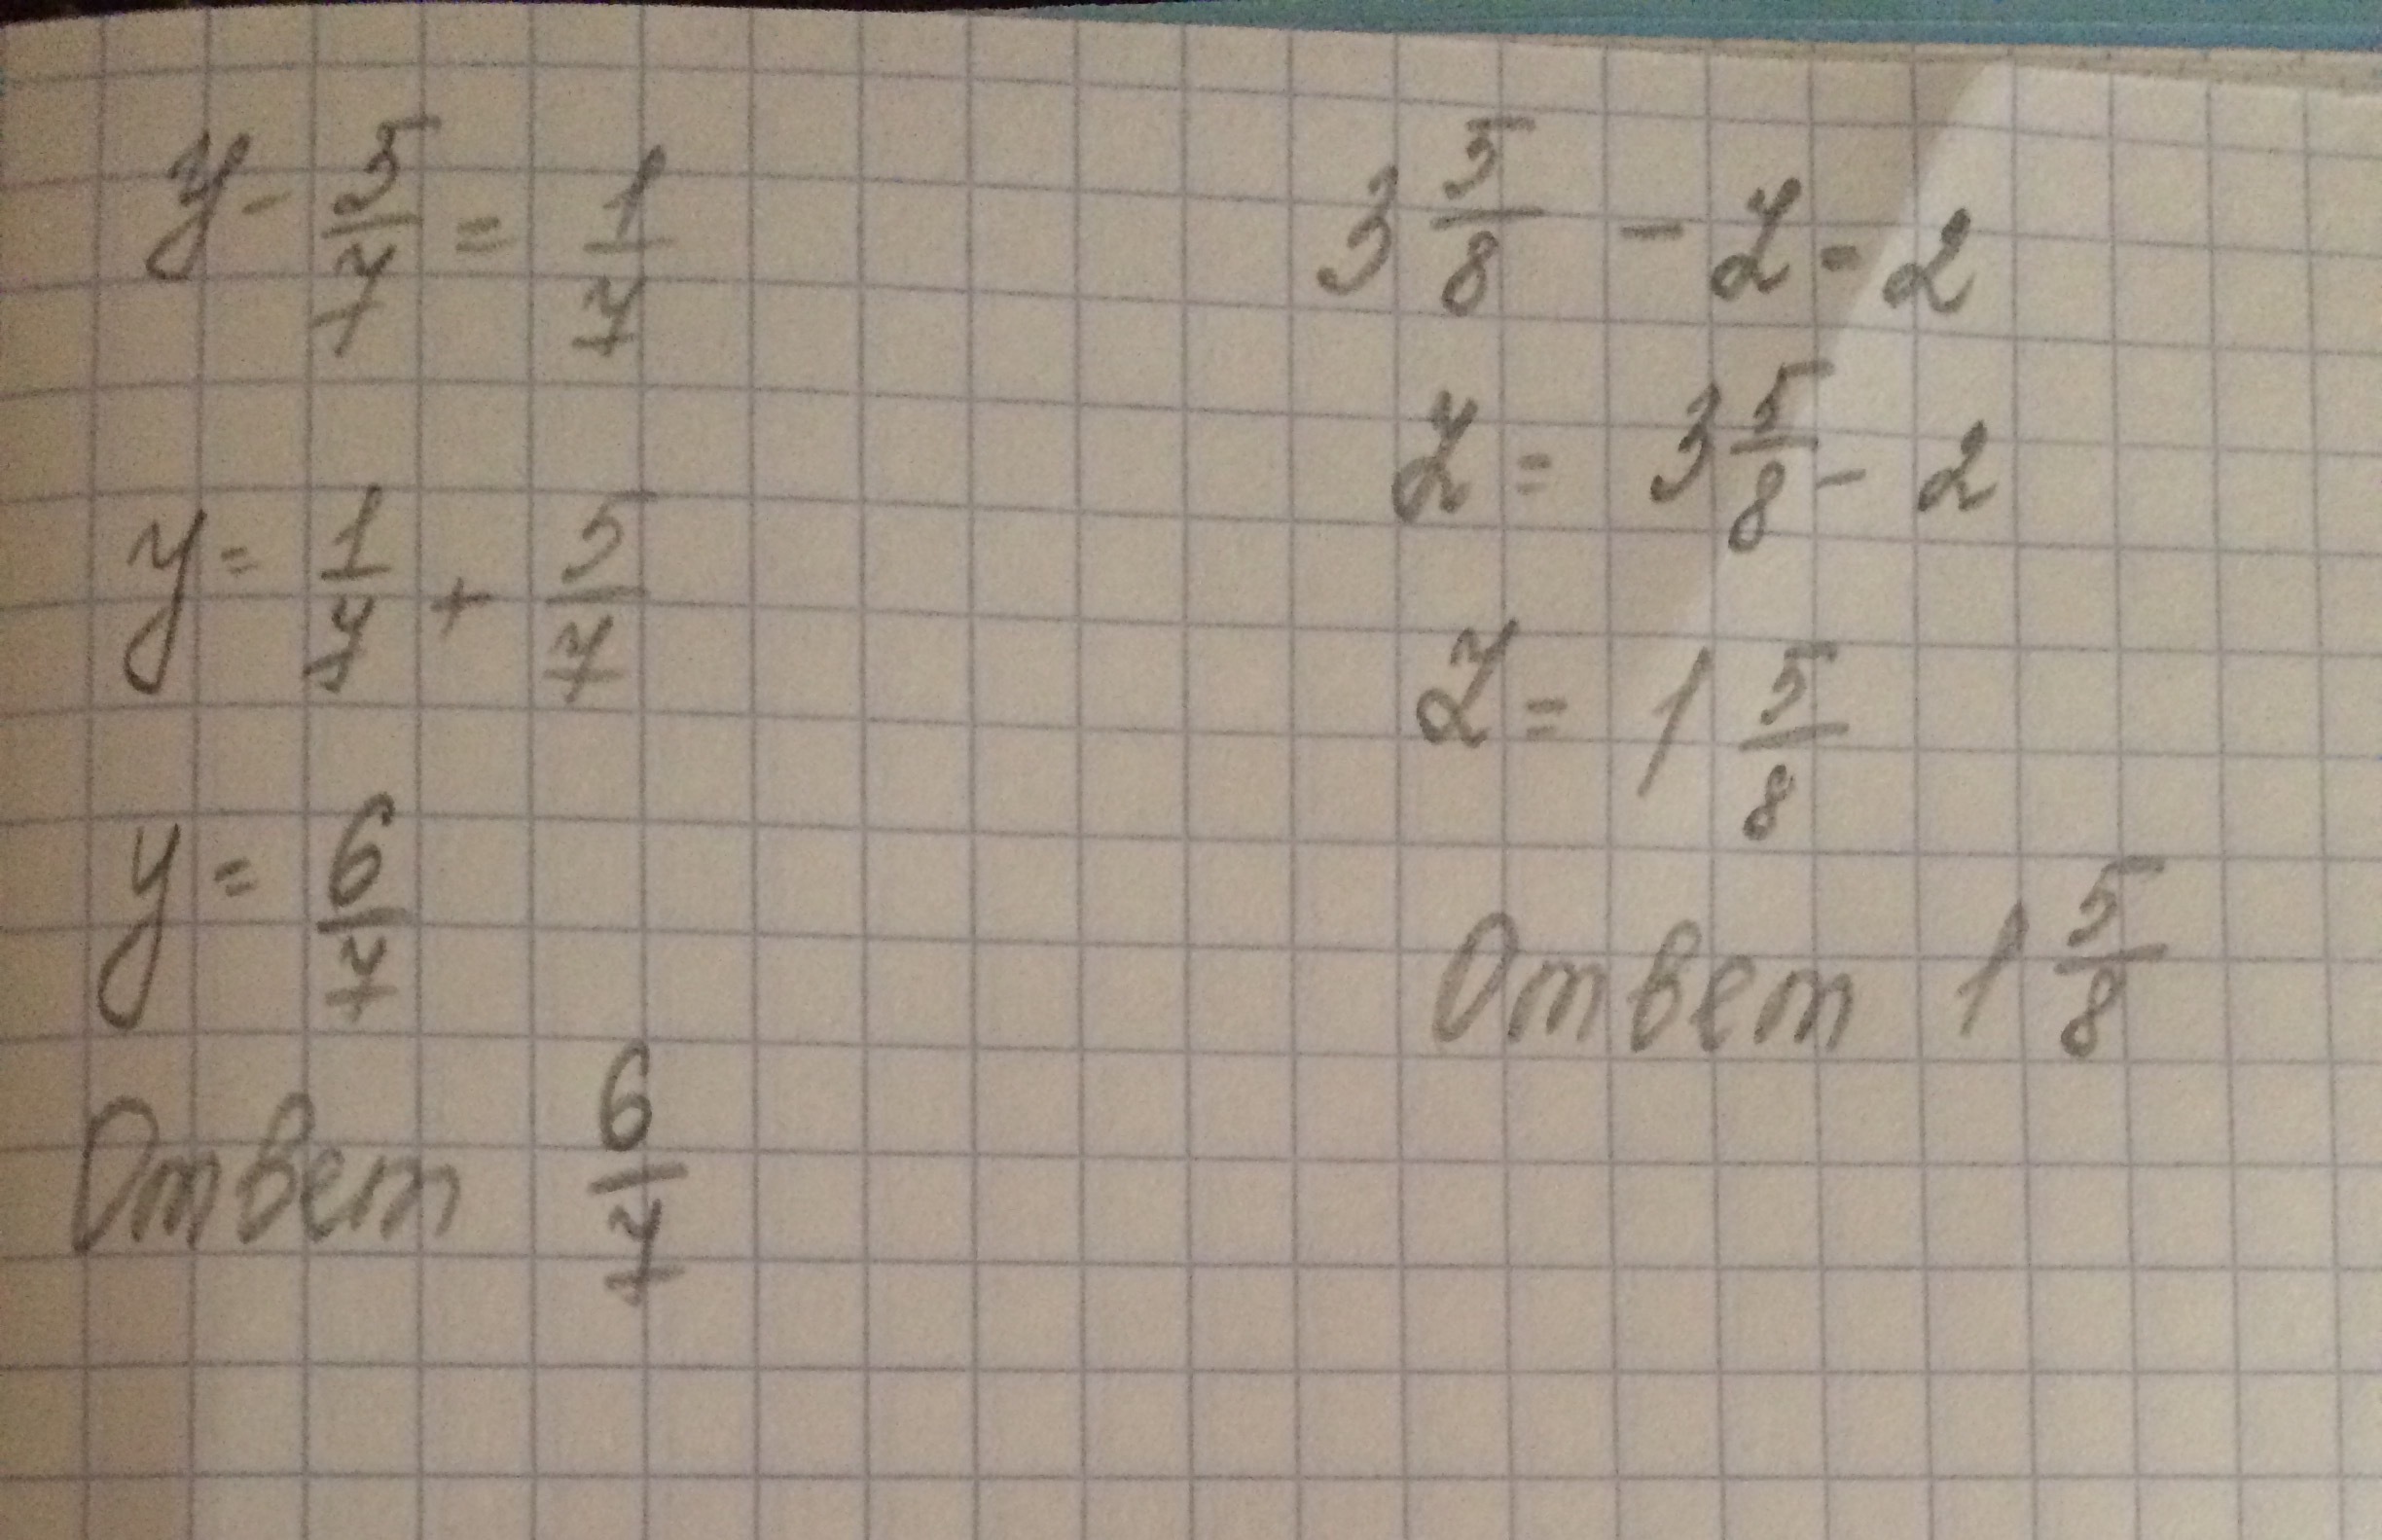 y - 5/7 = 1/7
y = 1/7 + 5/7
y = 6/7
Ответ 6/7
3 5/8 - z = 2
z = 3 5/8 - 2
z = 1 5/8
Ответ 1 5/8